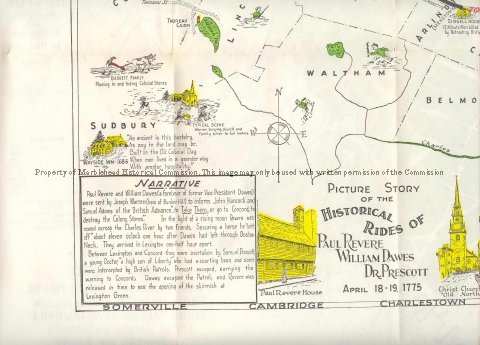 Thoreau St
THOREAU
CAIRN
LINC
ARLING
RUSSELL HOUSE
by Retreating British
BARRETT FAMILY
Plowing in and hiding Colonial Stores
WALTHAM
BELMO
SUDBURY
TYPICAL SCENE
Women burying Church and
Family silver to hid looters
WAYSIDE INN 1686
"As ancient is this hostelry,
As any in the land may be,
Built in the Old Colonial Day
When men lived in a grander way
With ampler hospitality."
Charles
Property of Marblehead Historical Commission. This image may only be used with written permission of the Commission
NARRATIVE
Paul Revere and William Dawes (a forebear of former Vice-President Dawes)
were sent by Joseph Warren (hero of Bunker Hill) to inform John Hancock and
Samuel Adams of the British Advance to Take Them, or go to Concord to
destroy the Colony Stores. In the light of a rising moon Revere was
rowed across the Charles River by two friends. Securing a horse he "set
off" about eleven o'clock one hour after Dawes had left through Boston
Neck. They arrived in Lexington one-half hour apart.
Between Lexington and Concord they were overtaken by Samuel Prescott,
a young Doctor, "a high son of Liberty" who had a-courting been and soon
were intercepted by British Patrols. Prescott escaped, carrying the
warning to Concord. Dawes escaped the Patrol, and Revere was
released in time to see the opening of the skirmish at
Lexington Green.
PICTURE STORY
OF THE
HISTORICAL
RIDES OF
PAUL REVERE
WILLIAM DAWES
DR. PRESCOTT
APRIL 18-19, 1775
Paul Revere House
Christ Church
"Old North
SOMERVILLE CAMBRIDGE CHARLESTOWN